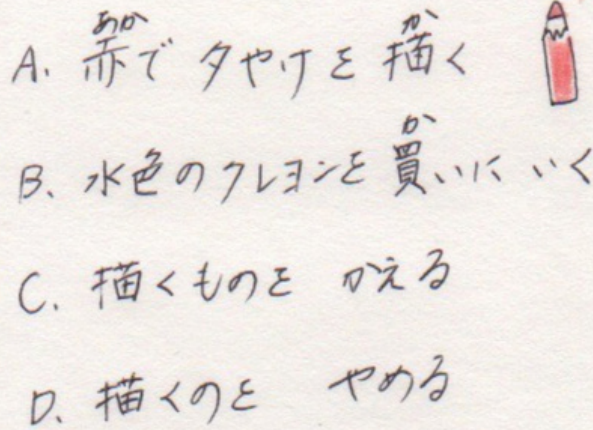 A. 赤で夕やけを描く
B. 水色のクレヨンを買いにいく
C. 描くものを かえる
D. 描くのを やめる